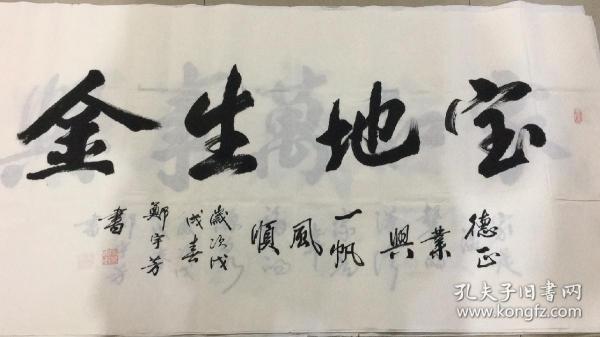 宝地生金
德正
業
興
一帆
風
順
歲次戊
戌春
鄭宇芳
書
孔夫子旧书网
www.kongfz.com